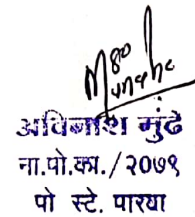 अविनाश मुंढे
ना.पो.का./२०७९
पो स्टे. पारधा